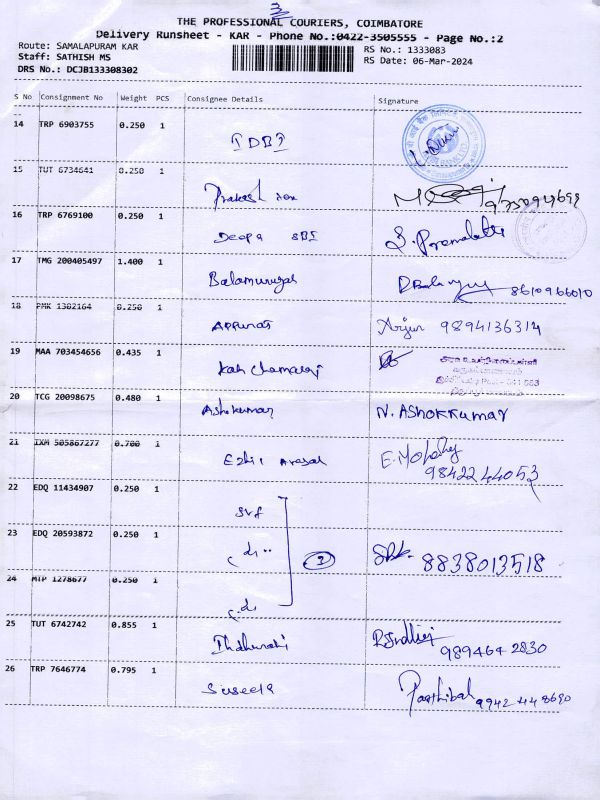 3
THE PROFESSIONAL COURIERS, COIMBATORE
Delivery Runsheet - KAR - Phone No.:0422-3505555 - Page No.:2
Route: SAMALAPURAM KAR
RS No.: 1333083
Staff: SATHISH MS
RS Date: 06-Mar-2024
DRS No.: DCJB133308302
S No Consignment No Weight PCS Consignee Details Signature
14 TRP 6903755 0.250 1 IDBI
15 TUT 6734641 0.250 1 Prakash
16 TRP 6769100 0.250 1 Deepa SBI S. Premalatha
17 TMG 200405497 1.400 1 Balamurugan 8610966010
18 PMK 1302164 0.250 1 Arjun 9894136314
19 MAA 703454656 0.435 1
20 TCG 20098675 0.480 1 Ashokumar N. ASHOKKUMAR
21 IXM 505867277 0.700 1 Ezhil Arasan 9842244053
22 EDQ 11434907 0.250 1
23 EDQ 20593872 0.250 1 8838013518
24 MTP 1278677 0.250 1
25 TUT 6742742 0.855 1 989464 2830
26 TRP 7646774 0.795 1 Suseela Parthiban 9942448690